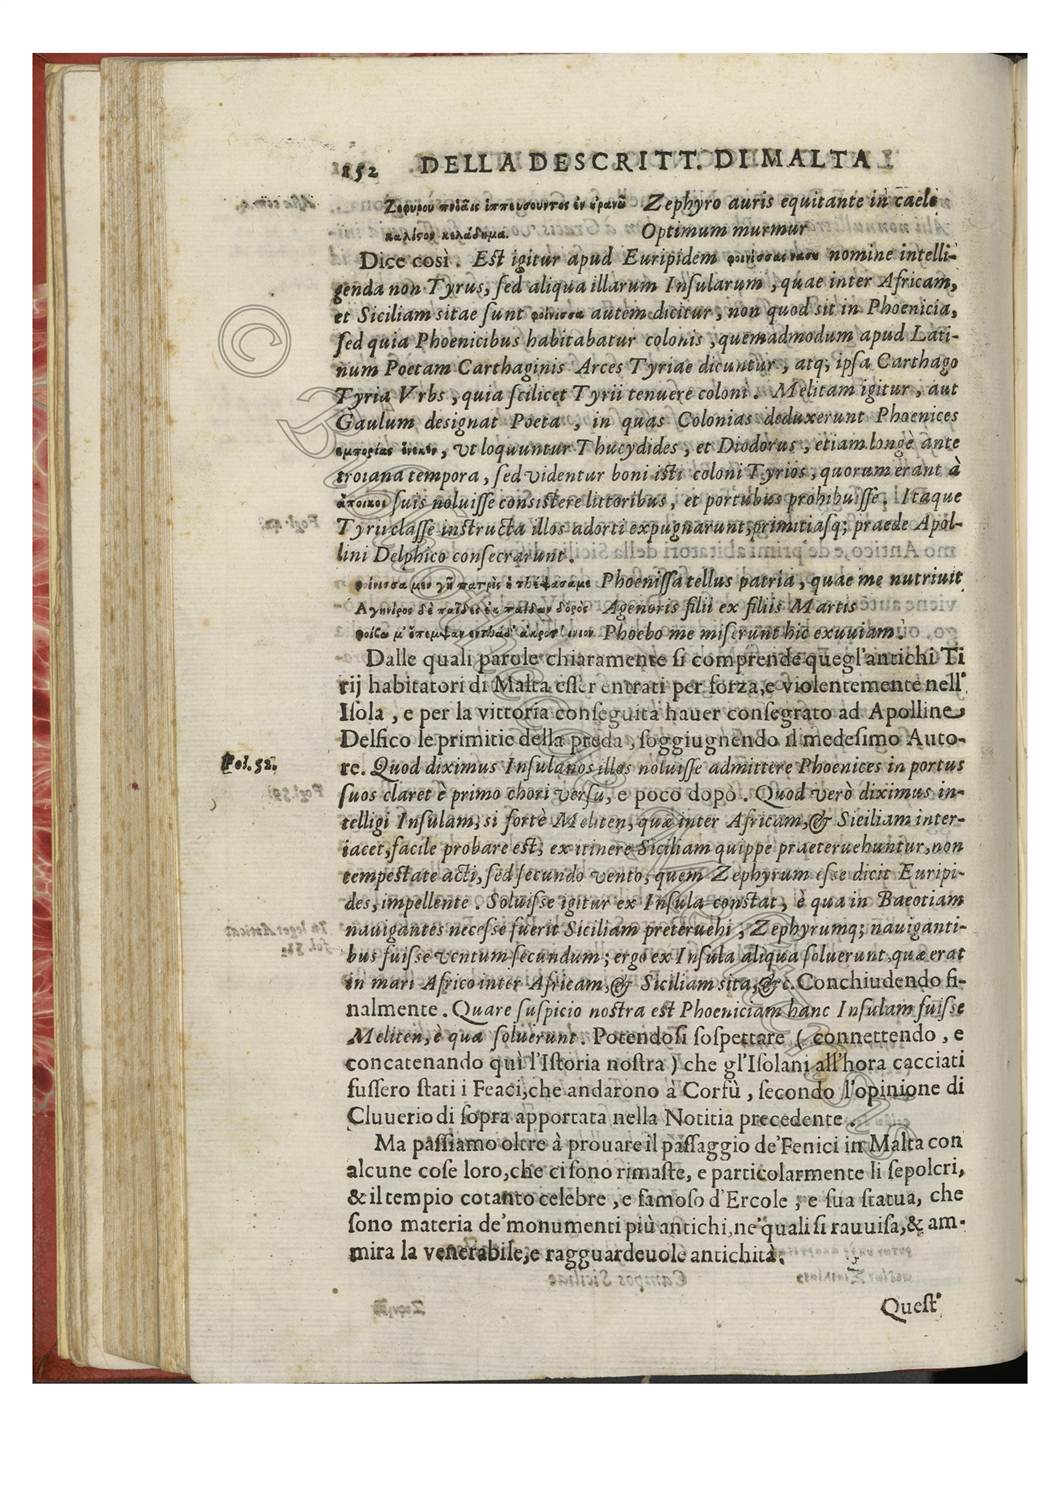 152 DELLA DESCRITT. DI MALTA
Ζεφυρου πνοαῖς ἱππευσουντος ἐν ὐρανῶ Zephyro auris equitante in caelo
καλιςον κελάδημα. Optimum murmur
Dice così. Est igitur apud Euripidem φοινισσαι νασυ nomine intelli-
genda non Tyrus, sed aliqua illarum Insularum, quae inter Africam,
et Siciliam sitae sunt φοινισσα autem dicitur, non quod sit in Phoenicia,
sed quia Phoenicibus habitabatur colonis, quemadmodum apud Lati-
num Poetam Carthaginis Arces Tyriae dicuntur, atq; ipsa Carthago
Tyria Vrbs, quia scilicet Tyrii tenuere coloni. Melitam igitur, aut
Gaulum designat Poeta, in quas Colonias deduxerunt Phoenices
εμπορίας ἕνεκεν, vt loquuntur Thucydides, et Diodorus, etiam longè ante
troiana tempora, sed videntur boni isti coloni Tyrios, quorum erant à
ἄποικοι suis noluisse consistere littoribus, et portubus prohibuisse. Itaque
Tyrii classe instructa illos adorti expugnarunt, primitiasq; praede Apol-
lini Delphico consecrarunt.
φοίνισσα μεν γῆ πατρὶς ἡ Phoenissa tellus patria, quae me nutriuit
Αγηνόρος δὲ παῖδες ἐκ παίδων Agenoris filii ex filiis Martis
φοίζω μ' ἔπεμψαν Phoebo me miserunt hic exuuiam.
Dalle quali parole chiaramente si comprende quegl'antichi Ti
rij habitatori di Malta esser entrati per forza, e violentemente nell'
Isola, e per la vittoria conseguita hauer consegrato ad Apolline
Delfico le primitie della preda, soggiugnendo il medesimo Auto-
Fol. 52. re. Quod diximus Insulanos illos noluisse admittere Phoenices in portus
suos claret è primo chori versu, e poco dopo. Quod verò diximus in-
telligi Insulam, si fortè Meliten, quæ inter Africam, & Siciliam inter-
iacet, facile probare est, ex itinere Siciliam quippe praeteruehuntur, non
tempestate acti, sed secundo vento, quem Zephyrum esse dicit Euripi-
des, impellente. Soluisse igitur ex Insula constat, è qua in Baeotiam
nauigantes necesse fuerit Siciliam preteruehi, Zephyrumq; nauiganti-
bus fuisse ventum secundum; ergo ex Insula aliqua soluerunt, quæ erat
in mari Africo inter Africam, & Siciliam sita, &c. Conchiudendo fi-
nalmente. Quare suspicio nostra est Phoeniciam hanc Insulam fuisse
Meliten, è qua soluerunt. Potendosi sospettare (connettendo, e
concatenando quì l'Istoria nostra) che gl'Isolani all'hora cacciati
fussero stati i Feaci, che andarono à Corfù, secondo l'opinione di
Cluuerio di sopra apportata nella Notitia precedente.
Ma passiamo oltre à prouare il passaggio de' Fenici in Malta con
alcune cose loro, che ci sono rimaste, e particolarmente li sepolcri,
& il tempio cotanto celebre, e famoso d'Ercole, e sua statua, che
sono materia de' monumenti più antichi, ne' quali si rauuisa, & am-
mira la venerabile, e ragguardeuole antichità.
Quest'